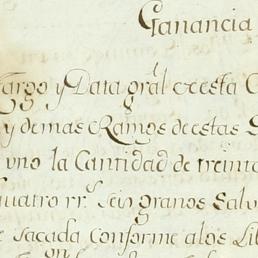 Ganancia
Cargo y Data gral de esta C
y demas Ramos de estas
uno la Cantidad de treint
quatro rr.s seis granos Salv
e sacada conforme a los Lib